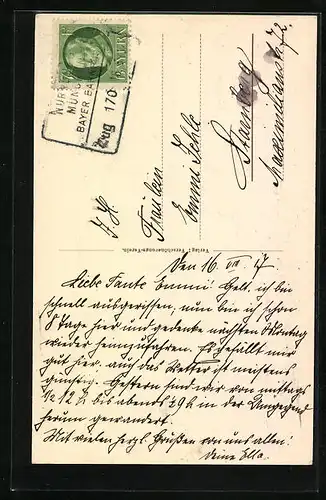 BAYERN
NÜR
MÜN
BAYER. BA
Zug 170
S. H.
Fräulein
Emmi
Starnberg
Maximilianstr. 72.
Verlag Verschönerungs-Verein.
Den 16. VII. 17
Liebe Tante Emmi! Gelt, ich bin
schnell ausgerissen, nun bin ich schon
8 Tage hier und gedenke nächsten Montag
wieder heimzufahren. Es gefällt mir
gut hier. auch das Wetter ist meistens
günstig. Gestern sind wir von mittags
½ 12 h bis abends ½ 9 h in der Umgegend
herum gewandert.
Mit vielen herzl. Grüßen von uns allen!
Deine Ella.